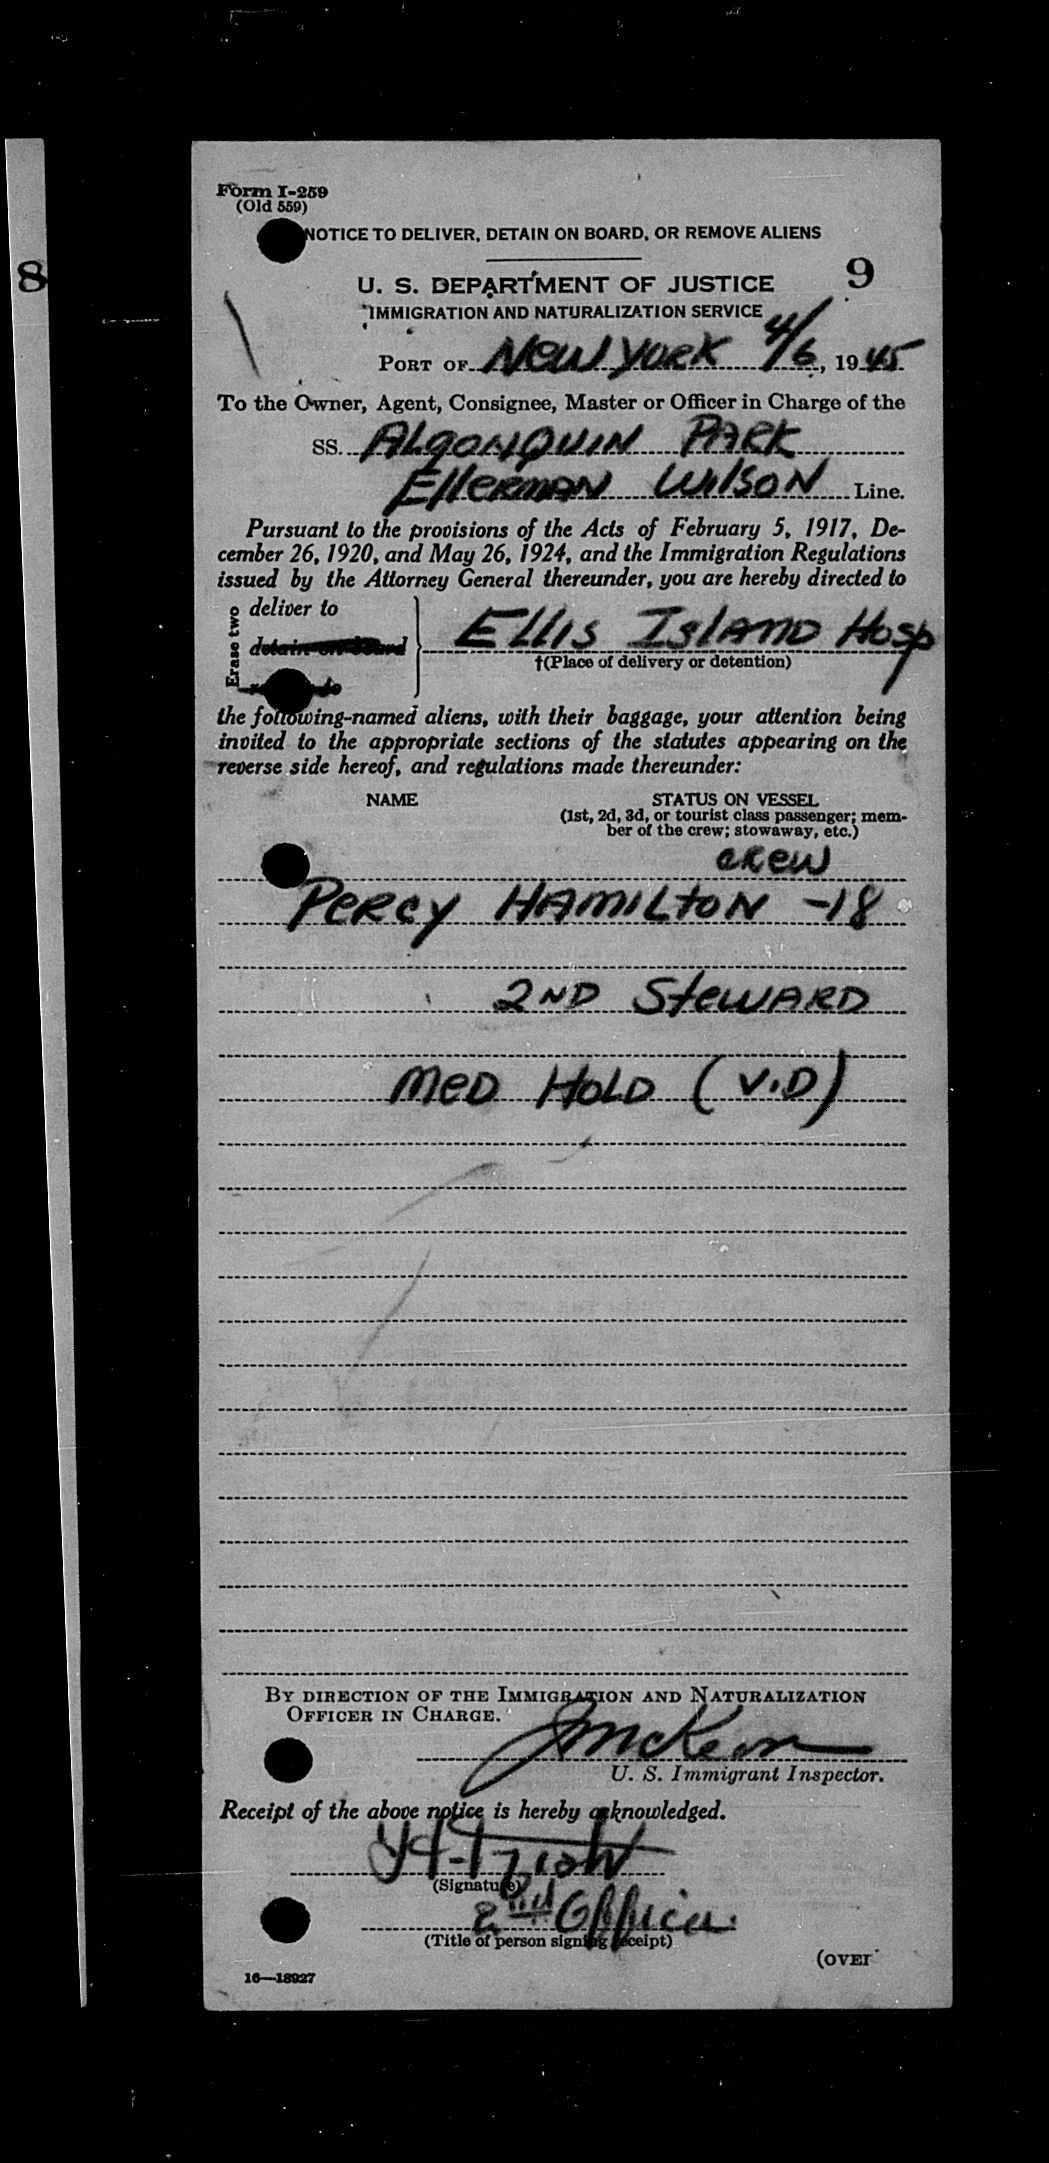 Form I-259
(Old 559)
NOTICE TO DELIVER, DETAIN ON BOARD, OR REMOVE ALIENS
8
9
U. S. DEPARTMENT OF JUSTICE
IMMIGRATION AND NATURALIZATION SERVICE
PORT OF New York 4/6, 1945
To the Owner, Agent, Consignee, Master or Officer in Charge of the
SS. ALGONQUIN PARK
Ellerman Wilson Line.
Pursuant to the provisions of the Acts of February 5, 1917, De-
cember 26, 1920, and May 26, 1924, and the Immigration Regulations
issued by the Attorney General thereunder, you are hereby directed to
Erase two
deliver to
detain on board
Ellis Island Hosp
†(Place of delivery or detention)
the following-named aliens, with their baggage, your attention being
invited to the appropriate sections of the statutes appearing on the
reverse side hereof, and regulations made thereunder:
NAME
STATUS ON VESSEL
(1st, 2d, 3d, or tourist class passenger; mem-
ber of the crew; stowaway, etc.)
crew
Percy Hamilton -18
2ND Steward
Med Hold (V.D)
BY DIRECTION OF THE IMMIGRATION AND NATURALIZATION
OFFICER IN CHARGE.
J McKeon
U. S. Immigrant Inspector.
Receipt of the above notice is hereby acknowledged.
(Signature)
2nd Officer
(Title of person signing receipt)
(OVER
16—18927